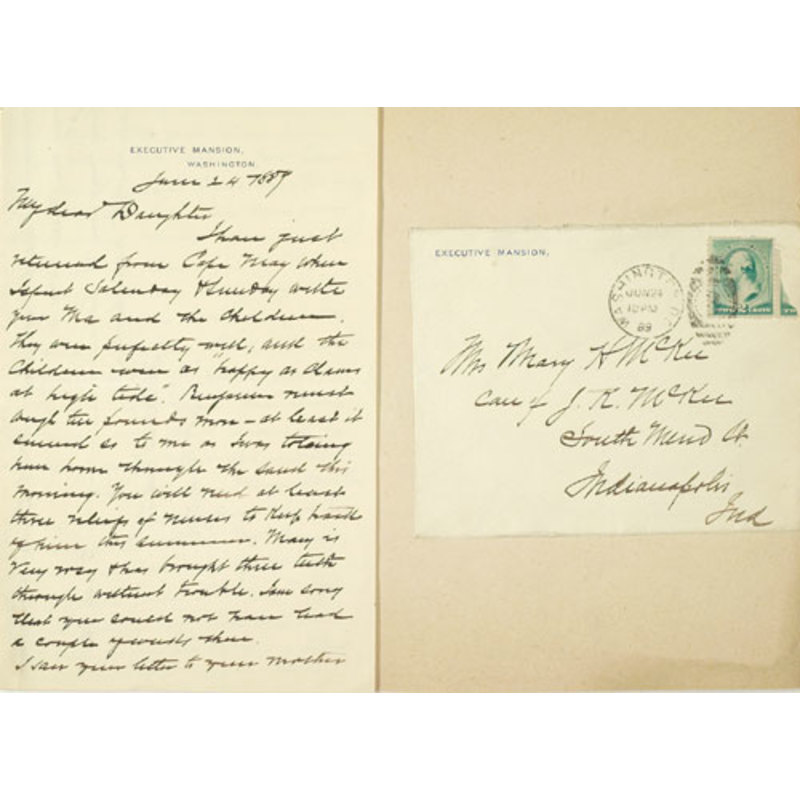 EXECUTIVE MANSION,
WASHINGTON.
June 24 1889
My dear Daughter
I have just
returned from Cape May where
I spent Saturday & Sunday with
your Ma and the Children.
They were perfectly well, and the
Children were as "happy as clams
at high tide". Benjamin must
weigh ten pounds more - at least it
seemed so to me as I was toting
him home through the sand this
morning. You will need at least
three relays of nurses to keep track
of him this summer. Mary is
very rosy & has brought three teeth
through without trouble. I am sorry
that you could not have had
a couple of weeks there.
I saw your letter to your mother
EXECUTIVE MANSION,
WASHINGTON, D.C.
JUN 24
PM
89
Mrs Mary H McKee
Care of J. R. McKee
South Merid St
Indianapolis
Ind